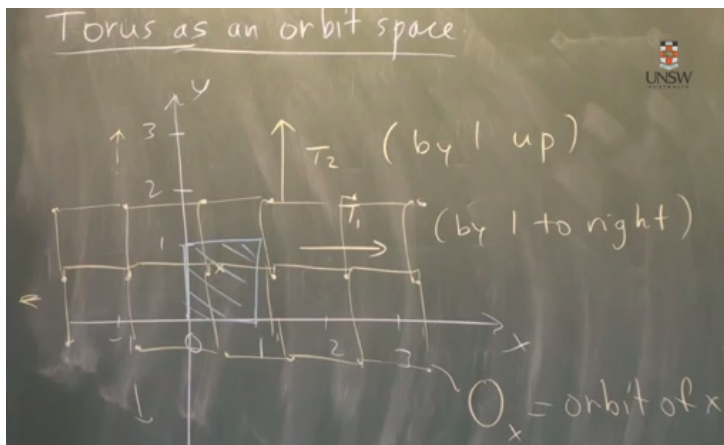 Torus as an orbit space.
UNSW
AUSTRALIA
y
3
T₂ (by 1 up)
2
T₁
(by 1 to right)
1
x
-1 0 1 2 3 x
Oₓ = orbit of x